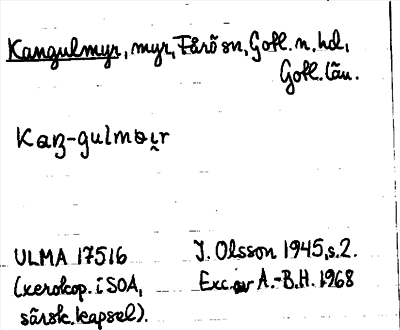 Kangulmyr, myr, Fårö sn, Gotl. n. hd,
Gotl. län.
Kaŋ-gulmɵi̯r
ULMA 17516
(xerokop. i SOA,
särsk. kapsel).
J. Olsson 1945, s. 2.
Exc. av A.-B.H. 1968